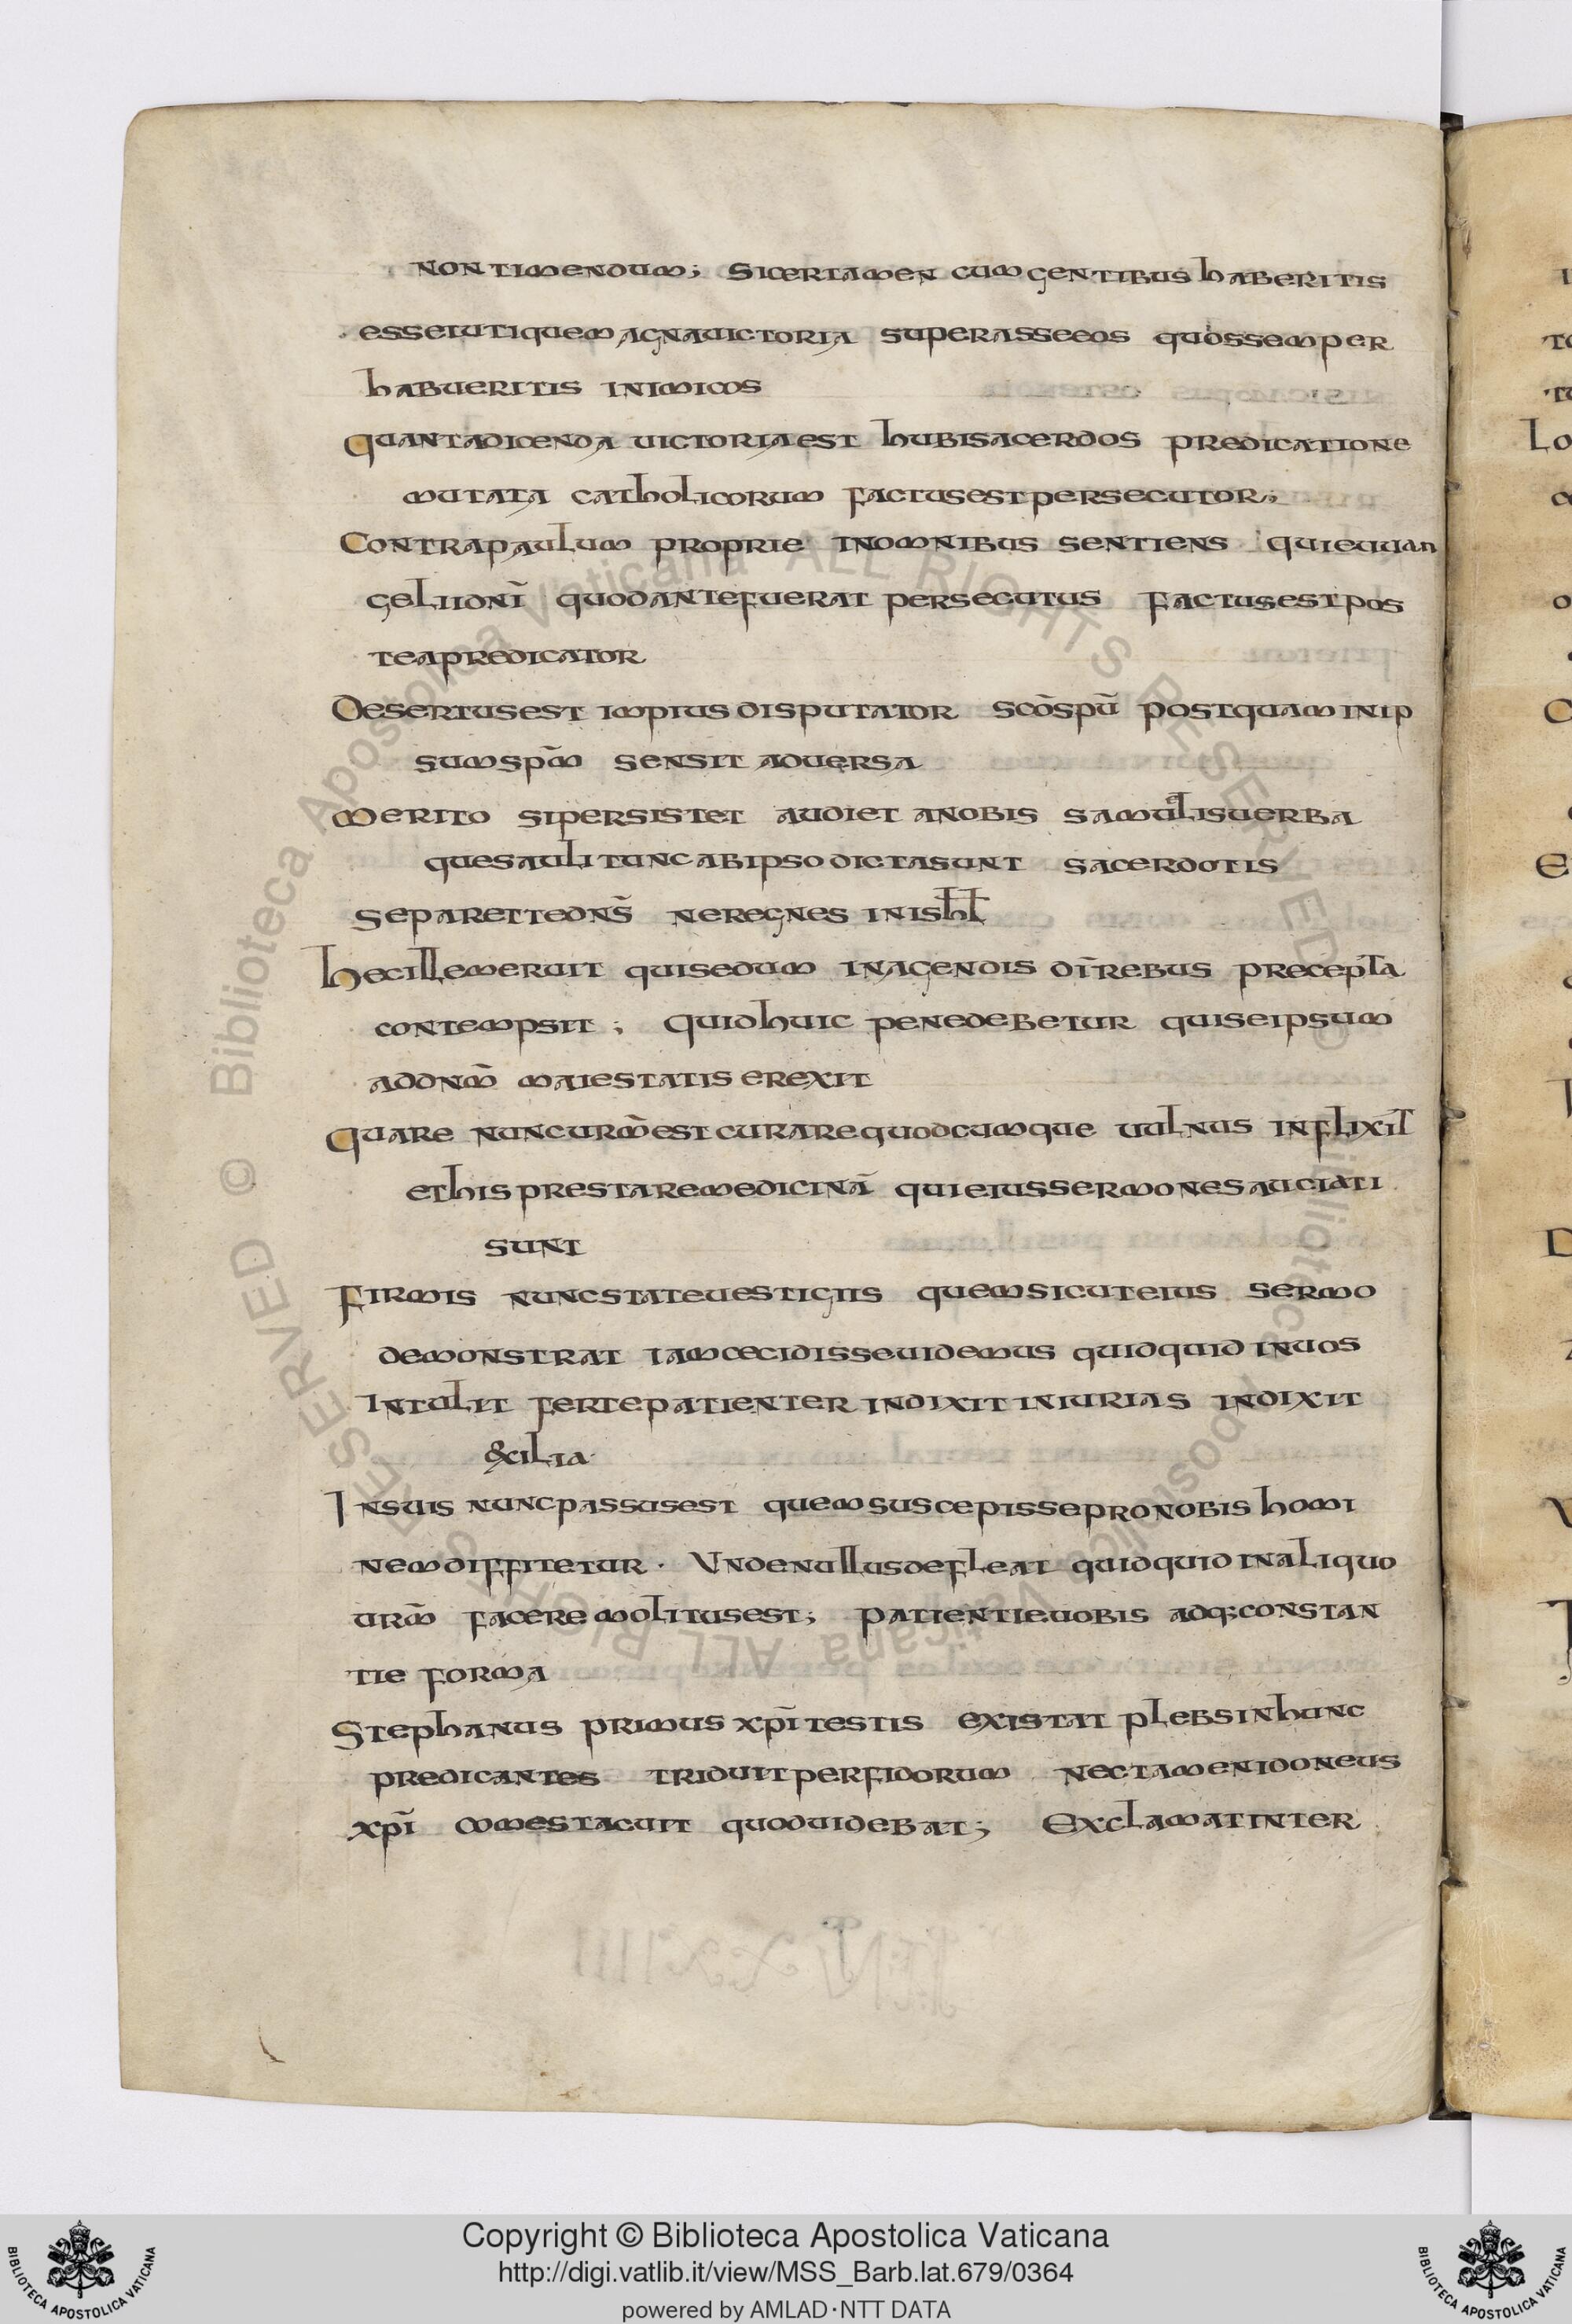 non timendum; sicertamen cum gentibus haberitis
esset utique magna uictoria superasse eos quos semper
habueritis inimicos
quanta dicenda uictoria est hubi sacerdos predicatione
mutata catholicorum factus est persecutor;
Contra paulum proprie in omnibus sentiens qui euuan
gelii dnī quod ante fuerat persecutus factus est pos
tea predicator
Desertus est impius disputator scō spū postquam in ip
sum spm̄ sensit aduersa
merito si persistet audiet a nobis samuelis uerba
que sauli tunc ab ipso dicta sunt sacerdotis
separet te dns̄ ne regnes in ishl
hec ille meruit qui sedum in agendis dī rebus precepta
contempsit; quid huic pene debetur qui se ipsum
ad dnm̄ maiestatis erexit
Quare nunc urm̄ est curare quodcumque uulnus inflixit
et his prestare medicinā qui eius sermone sauciati
sunt
firmis nunc state uestigiis quem sicut eius sermo
demonstrat iam cecidisse uidemus quidquid in uos
intulit ferte patienter indixit iniurias indixit
&xilia
In suis nunc passus est quem suscepisse pro nobis homi
nem diffitetur. Unde nullus defleat quidquid in aliquo
urm̄ facere molitus est; patientie uobis adq; constan
tie forma
Stephanus primus xpī testis existat plebs in hunc
predicantes triduit perfidorum nec tamen idoneus
xpī comes tacuit quod uidebat; Exclamat inter
Copyright © Biblioteca Apostolica Vaticana
http://digi.vatlib.it/view/MSS_Barb.lat.679/0364
powered by AMLAD·NTT DATA
BIBLIOTECA APOSTOLICA VATICANA
BIBLIOTECA APOSTOLICA VATICANA
© Biblioteca Apostolica Vaticana ALL RIGHTS RESERVED
© Biblioteca Apostolica Vaticana ALL RIGHTS RESERVED